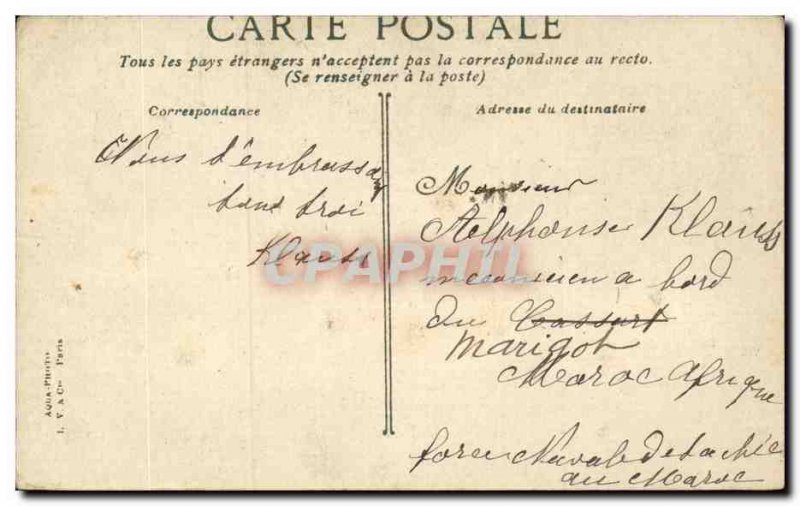 CARTE POSTALE
Tous les pays étrangers n'acceptent pas la correspondance au recto.
(Se renseigner à la poste)
Correspondance
Adresse du destinataire
Nous t'embrassons
tous troi
Klauss
Monsieur
Alphonse Klauss
a bord
du Cassart
Marigot
Maroc Afrique
force Navale de
au Maroc
CPAPHIL
AQUA-PHOTO
L. V. & Cie Paris